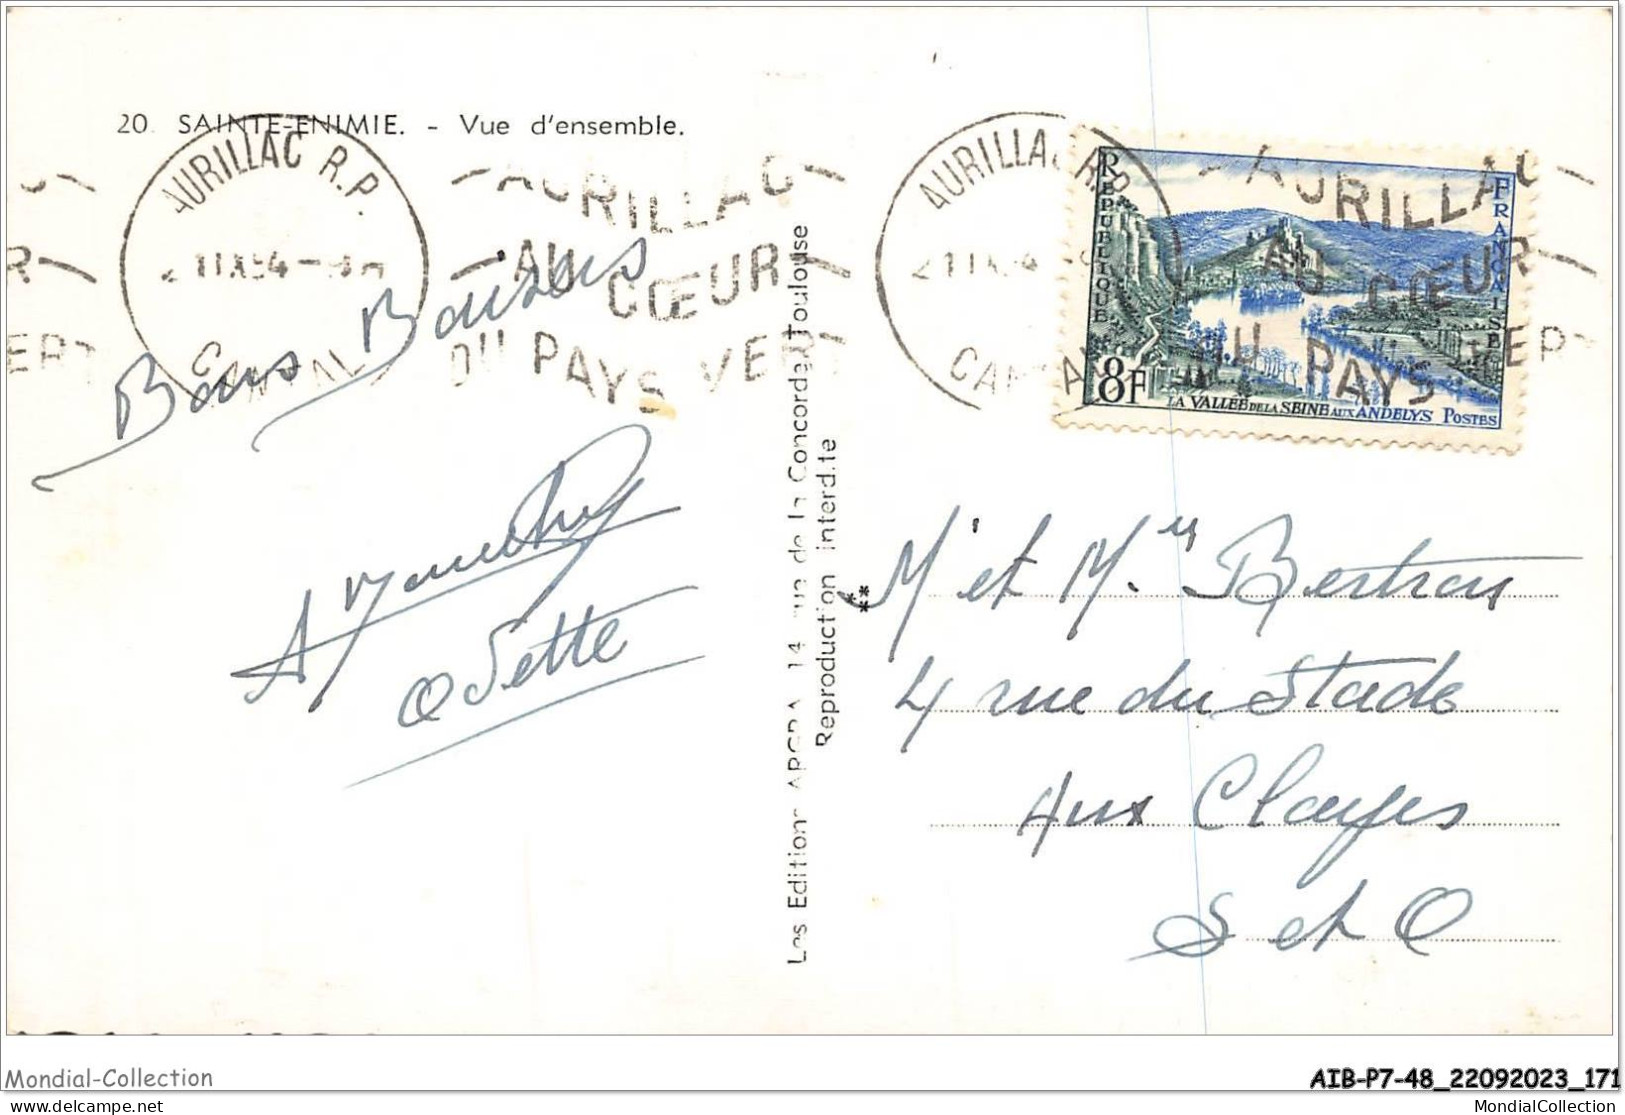 20. SAINTE-ENIMIE. - Vue d'ensemble.
AURILLAC R.P.
CANTAL
- AURILLAC -
AU CŒUR
DU PAYS VERT
Bons Baisers
Odette
Les Editions APA 14 rue de la Concorde Toulouse
Reproduction interdite
AURILLAC R.P.
CANTAL
- AURILLAC -
AU CŒUR
DU PAYS VERT
REPUBLIQUE
FRANÇAISE
8F
LA VALLEE DE LA SEINE AUX ANDELYS POSTES
Mr et M. Bertron
4 rue du Stade
Aux Clayes
S et O
Mondial-Collection
AIB-P7-48_22092023_171
Mondial-Collection.net
MondialCollection